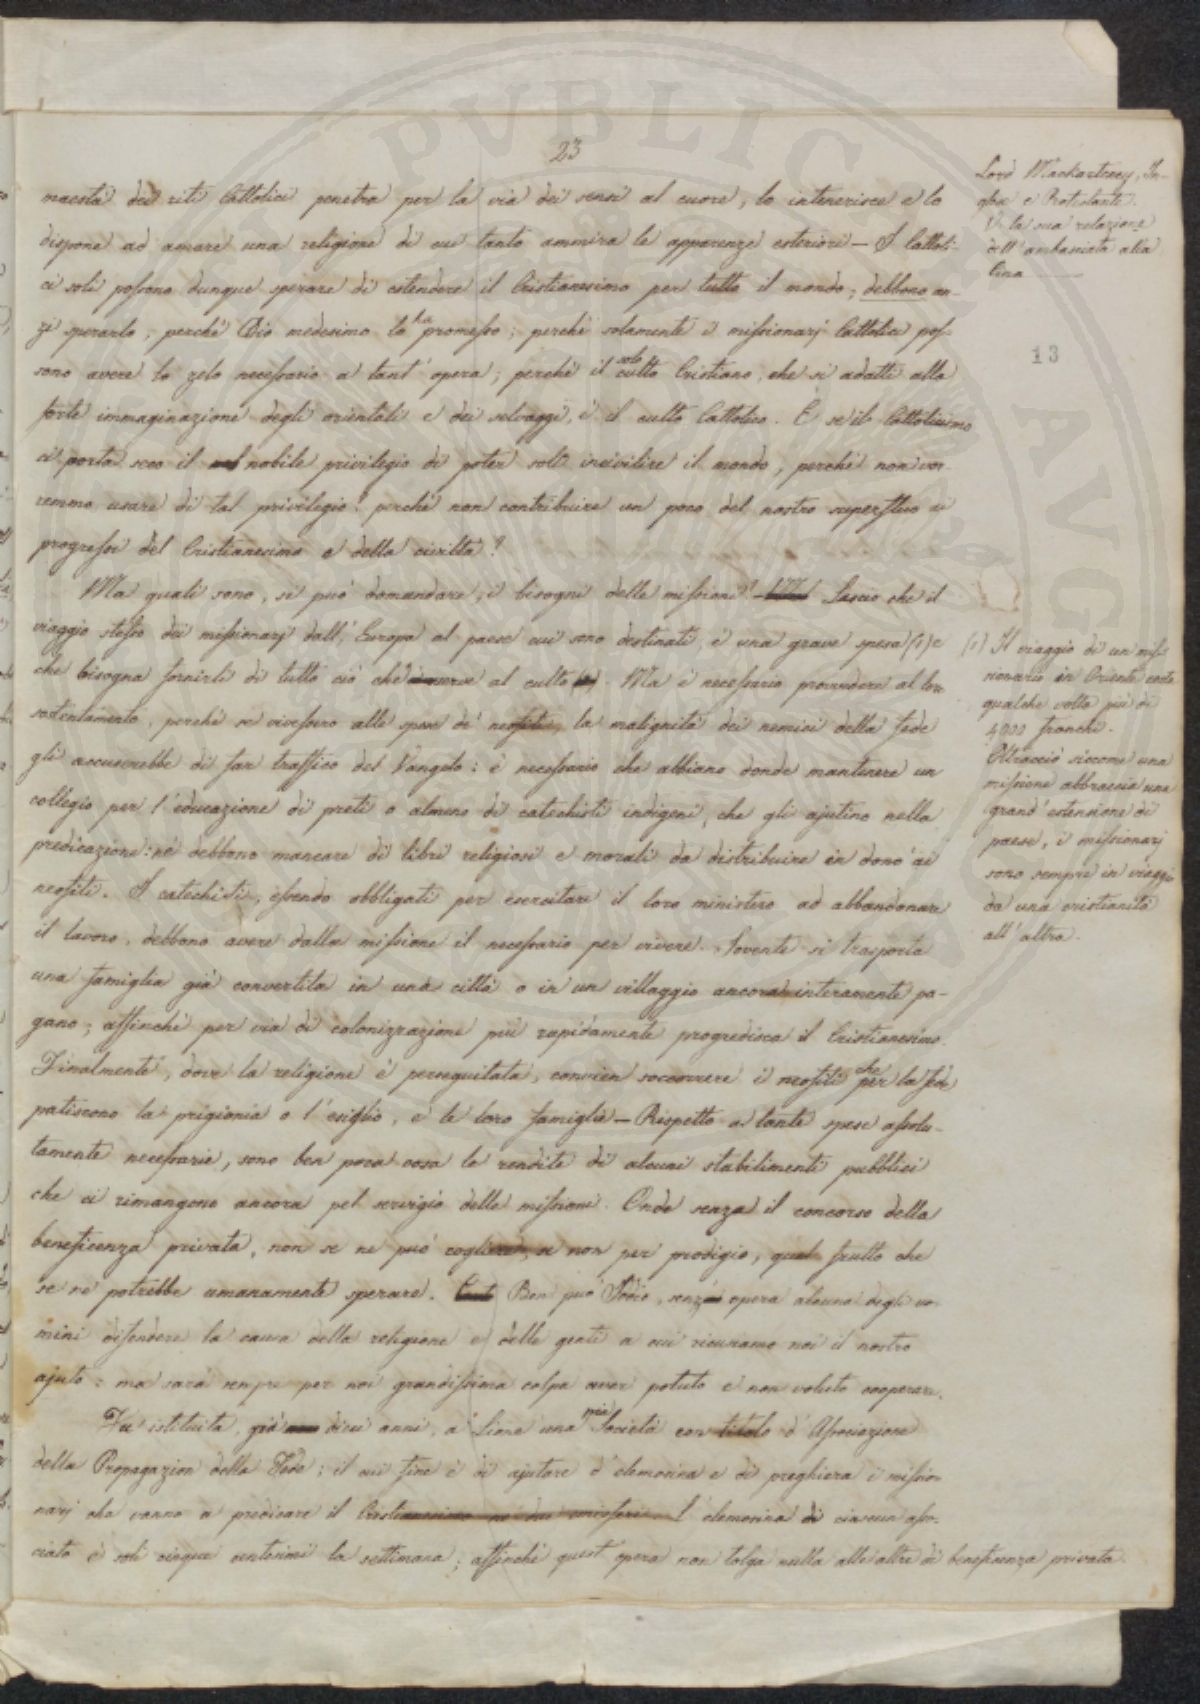 23
maestà dei riti Cattolici penetra per la via dei sensi al cuore, lo intenerisce e lo
dispone ad amare una religione di cui tanto ammira le apparenze esteriori — I Cattoli-
ci soli possono dunque sperare di estendere il Cristianesimo per tutto il mondo; debbono an-
zi sperarlo, perchè Dio medesimo lo ha promesso; perchè solamente i missionarj Cattolici pos-
sono avere lo zelo necessario a tant' opera; perchè il solo culto Cristiano, che si adatti alla
forte immaginazione degli orientali e dei selvaggi, è il culto Cattolico. E se il Cattolicismo
ci porta seco il nobile privilegio di poter solo incivilire il mondo, perchè non vor-
remmo usare di tal privilegio? perchè non contribuire un poco del nostro superfluo ai
progressi del Cristianesimo e della civiltà?
Ma quali sono, si può domandare, i bisogni delle missioni? Lascio che il
viaggio stesso dei missionarj dall' Europa al paese cui sono destinati è una grave spesa (1) e
che bisogna fornirli di tutto ciò che serve al culto. Ma è necessario provvedere al loro
sostentamento, perchè se vivessero alle spese di neofiti, la malignità dei nemici della fede
gli accuserebbe di far traffico del Vangelo: è necessario che abbiano donde mantenere un
collegio per l'educazione di preti o almeno di catechisti indigeni, che gli ajutino nella
predicazione: nè debbono mancare di libri religiosi e morali da distribuire in dono ai
neofiti. I catechisti, essendo obbligati per esercitare il loro ministero ad abbandonare
il lavoro, debbono avere dalla missione il necessario per vivere. Sovente si trasporta
una famiglia già convertita in una città o in un villaggio ancora interamente pa-
gano; affinchè per via di colonizzazione più rapidamente progredisca il Cristianesimo.
Finalmente, dove la religione è perseguitata, convien soccorrere i neofiti che per la fede
patiscono la prigionia o l'esiglio, e le loro famiglie — Rispetto a tante spese assolu-
tamente necessarie, sono ben poca cosa le rendite di alcuni stabilimenti pubblici
che ci rimangono ancora pel servigio delle missioni. Onde senza il concorso della
beneficenza privata, non se ne può cogliere, se non per prodigio, quel frutto che
se ne potrebbe umanamente sperare. Ben può Iddio, senza opera alcuna degli uo-
mini difendere la causa della religione e delle genti a cui ricusiamo noi il nostro
ajuto: ma sarà sempre per noi grandissima colpa aver potuto e non voluto cooperare.
Fu istituita, già dieci anni, a Lione una pia Società con titolo d' Associazione
della Propagazion della Fede; il cui fine è di ajutare d' elemosina e di preghiera i missio-
narj che vanno a predicare il Cristianesimo L' elemosina di ciascun asso-
ciato è soli cinque centesimi la settimana; affinchè quest' opera non tolga nulla alle altre di beneficenza privata.
Lord Mackartney, In-
glese e Protestante.
V. la sua relazione
dell' ambasciata alla
Cina
13
(1) Il viaggio di un mis-
sionario in Oriente costa
qualche volta più di
4000 franchi.
Oltracciò siccome una
missione abbraccia una
grand' estensione di
paese, i missionarj
sono sempre in viaggio
da una cristianità
all' altra.
PVBLIC
AVG